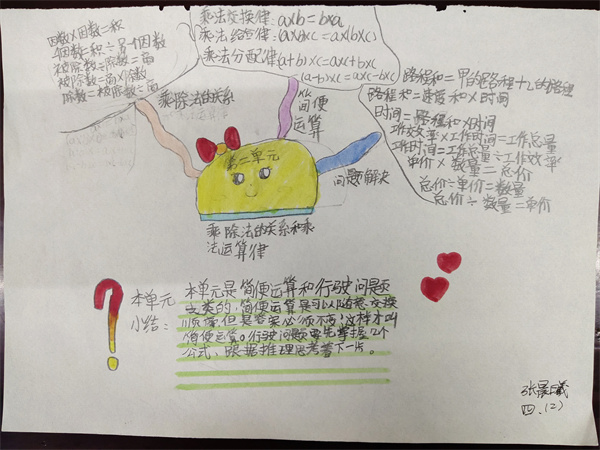 因数×因数=积
一个因数=积÷另一个因数
被除数÷除数=商
被除数=商×除数
除数=被除数÷商
乘法交换律:a×b=b×a
乘法结合律:(a×b)×c=a×(b×c)
乘法分配律(a+b)×c=a×c+b×c
(a-b)×c=a×c-b×c)
乘除法的关系
简便
运算
路程和=甲的路程+乙的路程
路程和=速度和×时间
时间=路程和×时间
工作效率×工作时间=工作总量
工作时间=工作总量÷工作效率
单价×数量=总价
总价÷单价=数量
总价÷数量=单价
第二单元
问题解决
乘除法的关系和乘
法运算律
本单元
小结:
本单元是简便运算和行驶问题
之类的,简便运算是可以随意交换
顺序,但是答案必须不变,这样才叫
简便运算。行驶问题要先掌握几个
公式,跟据推理思考一下一片。
张晨曦
四.(2)